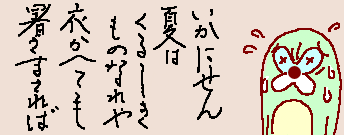 いかにせん
夏は
くるしき
ものなれや
衣かへても
暑さまされば